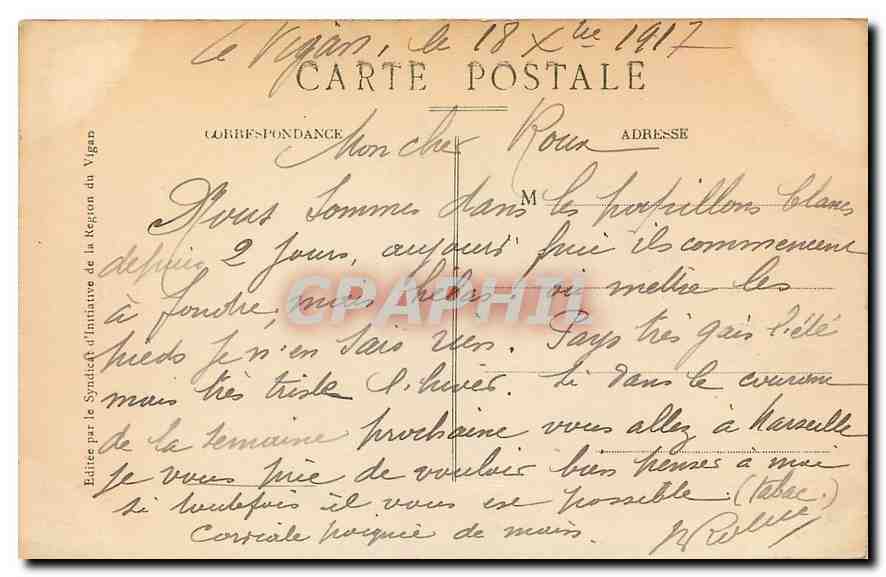 Le Vigan, le 18 Xbre 1917
CARTE POSTALE
CORRESPONDANCE
ADRESSE
Mon cher Roux
M
Nous sommes dans les papillons blancs
depuis 2 jours, aujourd'hui ils commencent
à fondre, mais hélas, où mettre les
pieds je n'en sais rien. Pays très gais l'été
mais très triste l'hiver. Si dans le courant
de la semaine prochaine vous allez à Marseille
je vous prie de vouloir bien penser à moi
si toutefois il vous est possible. (tabac.)
Cordiale poignée de mains.
Editée par le Syndicat d'Initiative de la Région du Vigan
CPAPHIL